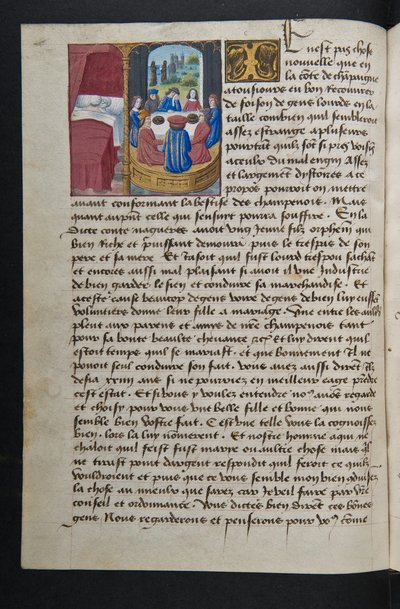 Il nest pas chose
nouvelle que en
la conte de champaigne
a tousiours eu bon recouvrer
de foison de gens lourds en la
taille combien quil sembleroit
assez estrange a pluseurs
pourtant quilz sont si pres voisins
a ceulx du mal engin Assez
et largement dystoires a ce
propos pourroit on mettre
avant conformant la bestise des champenois. Mais
quant au present celle qui sensuit pourra souffire. En la
dicte conte naguerres avoit ung jeune filz orphenin qui
bien riche et puissant demoura puis le trespas de son
pere et sa mere Et iasoit quil fust lourd trespou sachant
et encores aussi mal plaisant si avoit il une industrie
de bien garder le sien et conduire sa marchandise. Et
a ceste cause beaucop de gens voire de gens de bien luy eussent
voluntiers donne leur fille a mariage. Une entre les aultres
pleut aux parens et amys de nre champenois tant
pour sa bonte beaulte chevance &c Et luy dirent quil
estoit temps quil se mariast. et que bonnement Il ne
povoit seul conduire son fait. vous avez aussi dirent ilz
desia xxiiii ans si ne pourriez en meilleur eage prendre
cest estat. Et si vous y voulez entendre nos avons regarde
et choisy pour vous une belle fille et bonne qui nous
semble bien vostre fait. Cest une telle vous la cognoissez
bien. lors la luy nommerent. Et nostre homme a qui ne
chaloit quil feist fust marye ou aultre chose mais quil
ne tirast point dargent respondit quil feroit ce quilz
vouldroient et puis que ce vous semble mon bien conduisez
la chose au mieulx que sarez car Je veil faire par vre
conseil et ordonnance. vous dictes bien dirent ces bonnes
gens. Nous regarderons et penserons pour vos come